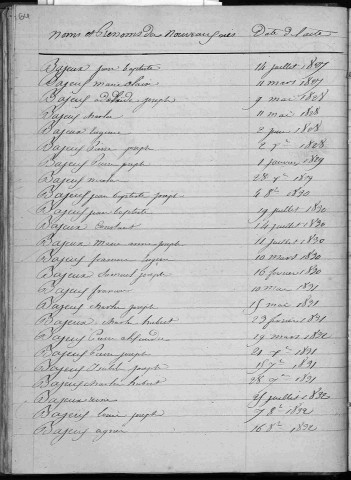 Noms et Prénoms des Nouveaux nés Date de l'acte
Bajeux jean baptiste 14 juillet 1807
Bajeux marie 11 mars 1807
Bajeux adelaide joseph 9 mai 1808
Bajeux nicolas 11 mai 1808
Bajeux eugenie 2 juin 1808
Bajeux Pierre joseph 2 7bre 1808
Bajeux Pierre joseph 1 janvier 1809
Bajeux nicolas 28 7bre
Bajeux jean baptiste joseph 4 8bre 1830
Bajeux jean baptiste 19 juillet 1830
Bajeux Constant 14 juillet 1830
Bajeux Marie anne joseph 11 juillet 1830
Bajeux francois 10 mars 1830
Bajeux Samuel joseph 16 fevrier 1830
Bajeux francois 10 mai 1831
Bajeux nicolas joseph 15 mai 1831
Bajeux nicolas hubert 23 fevrier 1831
Bajeux Pierre alexandre 19 mars 1831
Bajeux Pierre joseph 20 7bre 1831
Bajeux joseph 15 7bre 1831
Bajeux nicolas hubert 28 7bre 1831
Bajeux 25 juillet 1832
Bajeux joseph 7 8bre 1832
Bajeux 16 8bre 1832